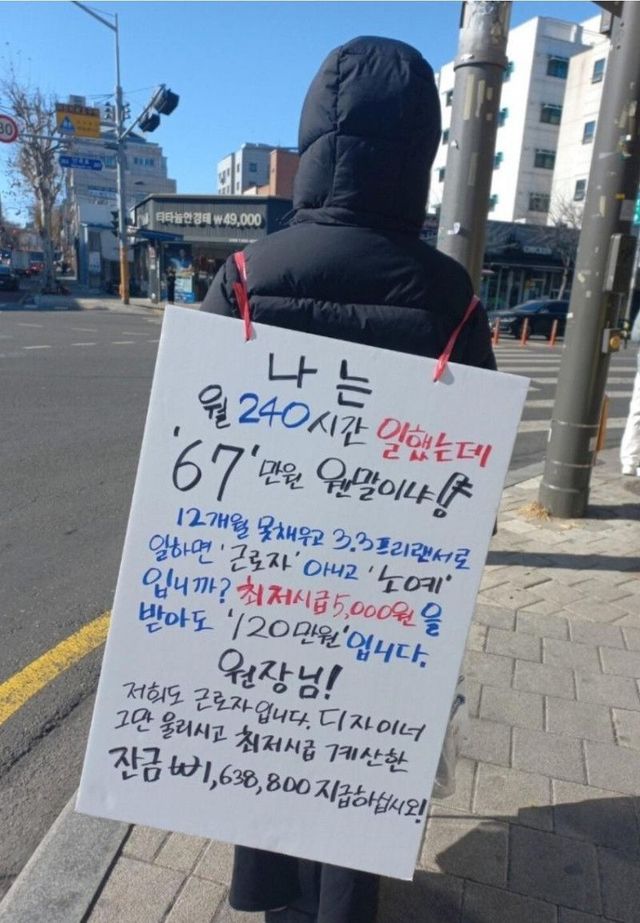 30
티타늄안경테 ₩49,000
나는
월 240시간 일했는데
'67'만원 웬말이냐!!
12개월 못채우고 3.3프리랜서로
일하면 '근로자' 아니고 '노예'
입니까? 최저시급 5,000원을
받아도 '120만원'입니다.
원장님!
저희도 근로자입니다. 디자이너
그만 울리시고 최저시급 계산한
잔금 ₩1,638,800 지급하십시오!